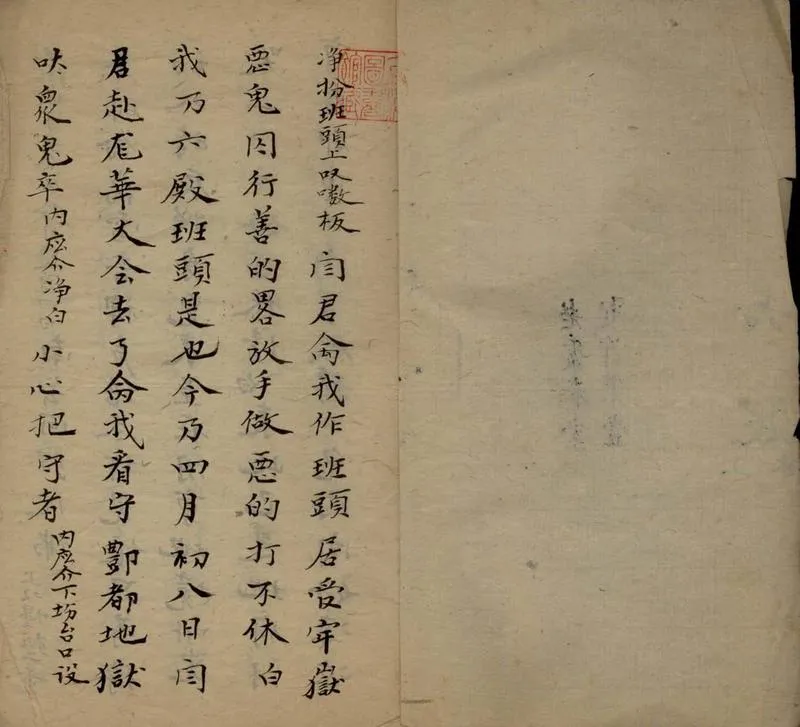 净扮班頭上叹嗷板 闫君侖我作班頭居受牢嶽
惡鬼囚行善的畧放手做惡的打不休白
我乃六殿班頭是也今乃四月初八日闫
君赴龙華大会去了侖我看守酆都地獄
呔衆鬼卒内应介净白小心把守者内应介下场台口设